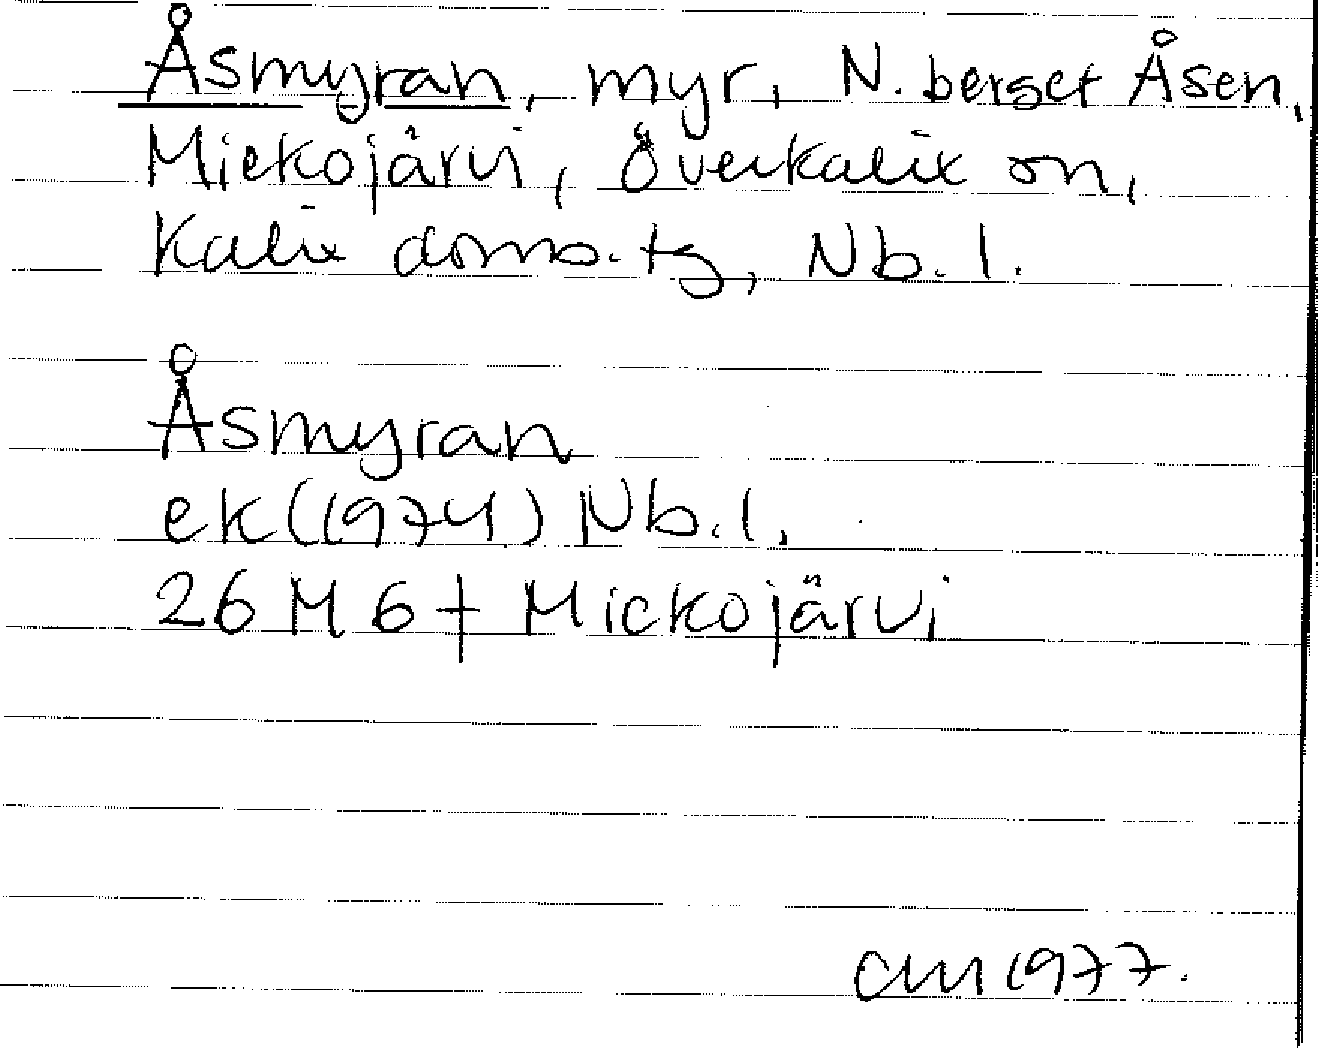 Åsmyran, myr, N. berget Åsen,
Mickojärvi, Överkalix sn,
Kalix doms.tg, Nb.l.
Åsmyran
ek(1974) Nb.l.
26 M 6 f Mickojärvi
CM 1977.